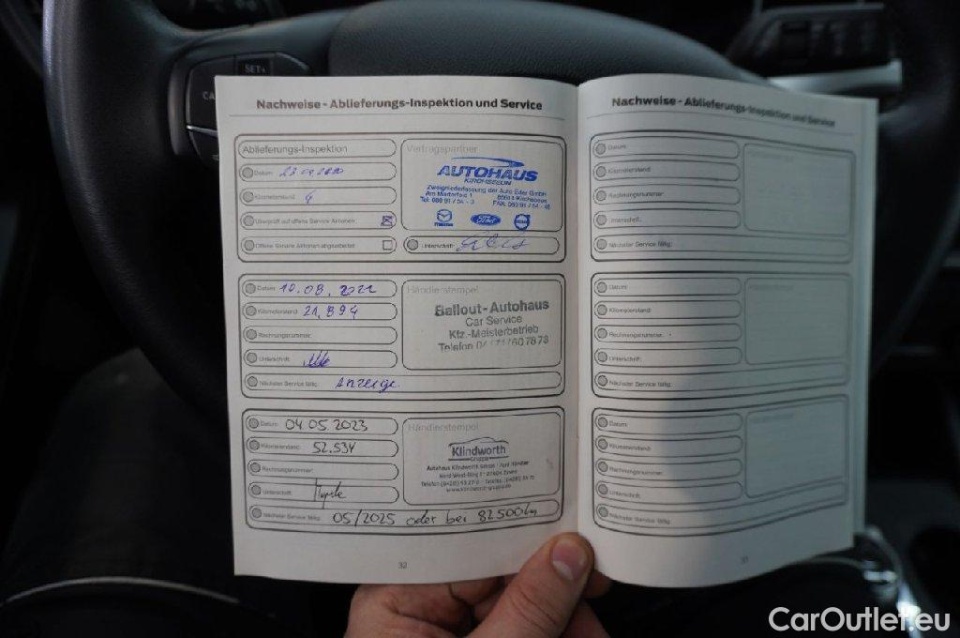 SET+
CA
Nachweise - Ablieferungs-Inspektion und Service
Ablieferungs-Inspektion
Datum
Kilometerstand 6
Überprüft auf offene Service Aktionen
Offene Service Aktionen abgearbeitet
Vertragspartner
AUTOHAUS
KIRCHSEEON
Zweigniederlassung der Auto Eder GmbH
Am Marterfeld 1
Ford
Unterschrift:
Datum 10.08.2021
Kilometerstand: 21.894
Rechnungsnummer:
Unterschrift:
Nächster Service fällig: Anzeige
Händlerstempel
Ballout-Autohaus
Car Service
Kfz.-Meisterbetrieb
Telefon
Datum: 04.05.2023
Kilometerstand: 52.534
Rechnungsnummer:
Unterschrift
Nächster Service fällig: 05/2025 oder bei 82500km
Händlerstempel
Klindworth
Autohaus Klindworth
32
Nachweise - Ablieferungs-Inspektion und Service
Datum:
Kilometerstand:
Rechnungsnummer:
Unterschrift:
Nächster Service fällig:
Datum:
Kilometerstand:
Rechnungsnummer:
Unterschrift:
Nächster Service fällig:
Datum:
Kilometerstand:
Rechnungsnummer:
Unterschrift:
Nächster Service fällig:
CarOutlet.eu